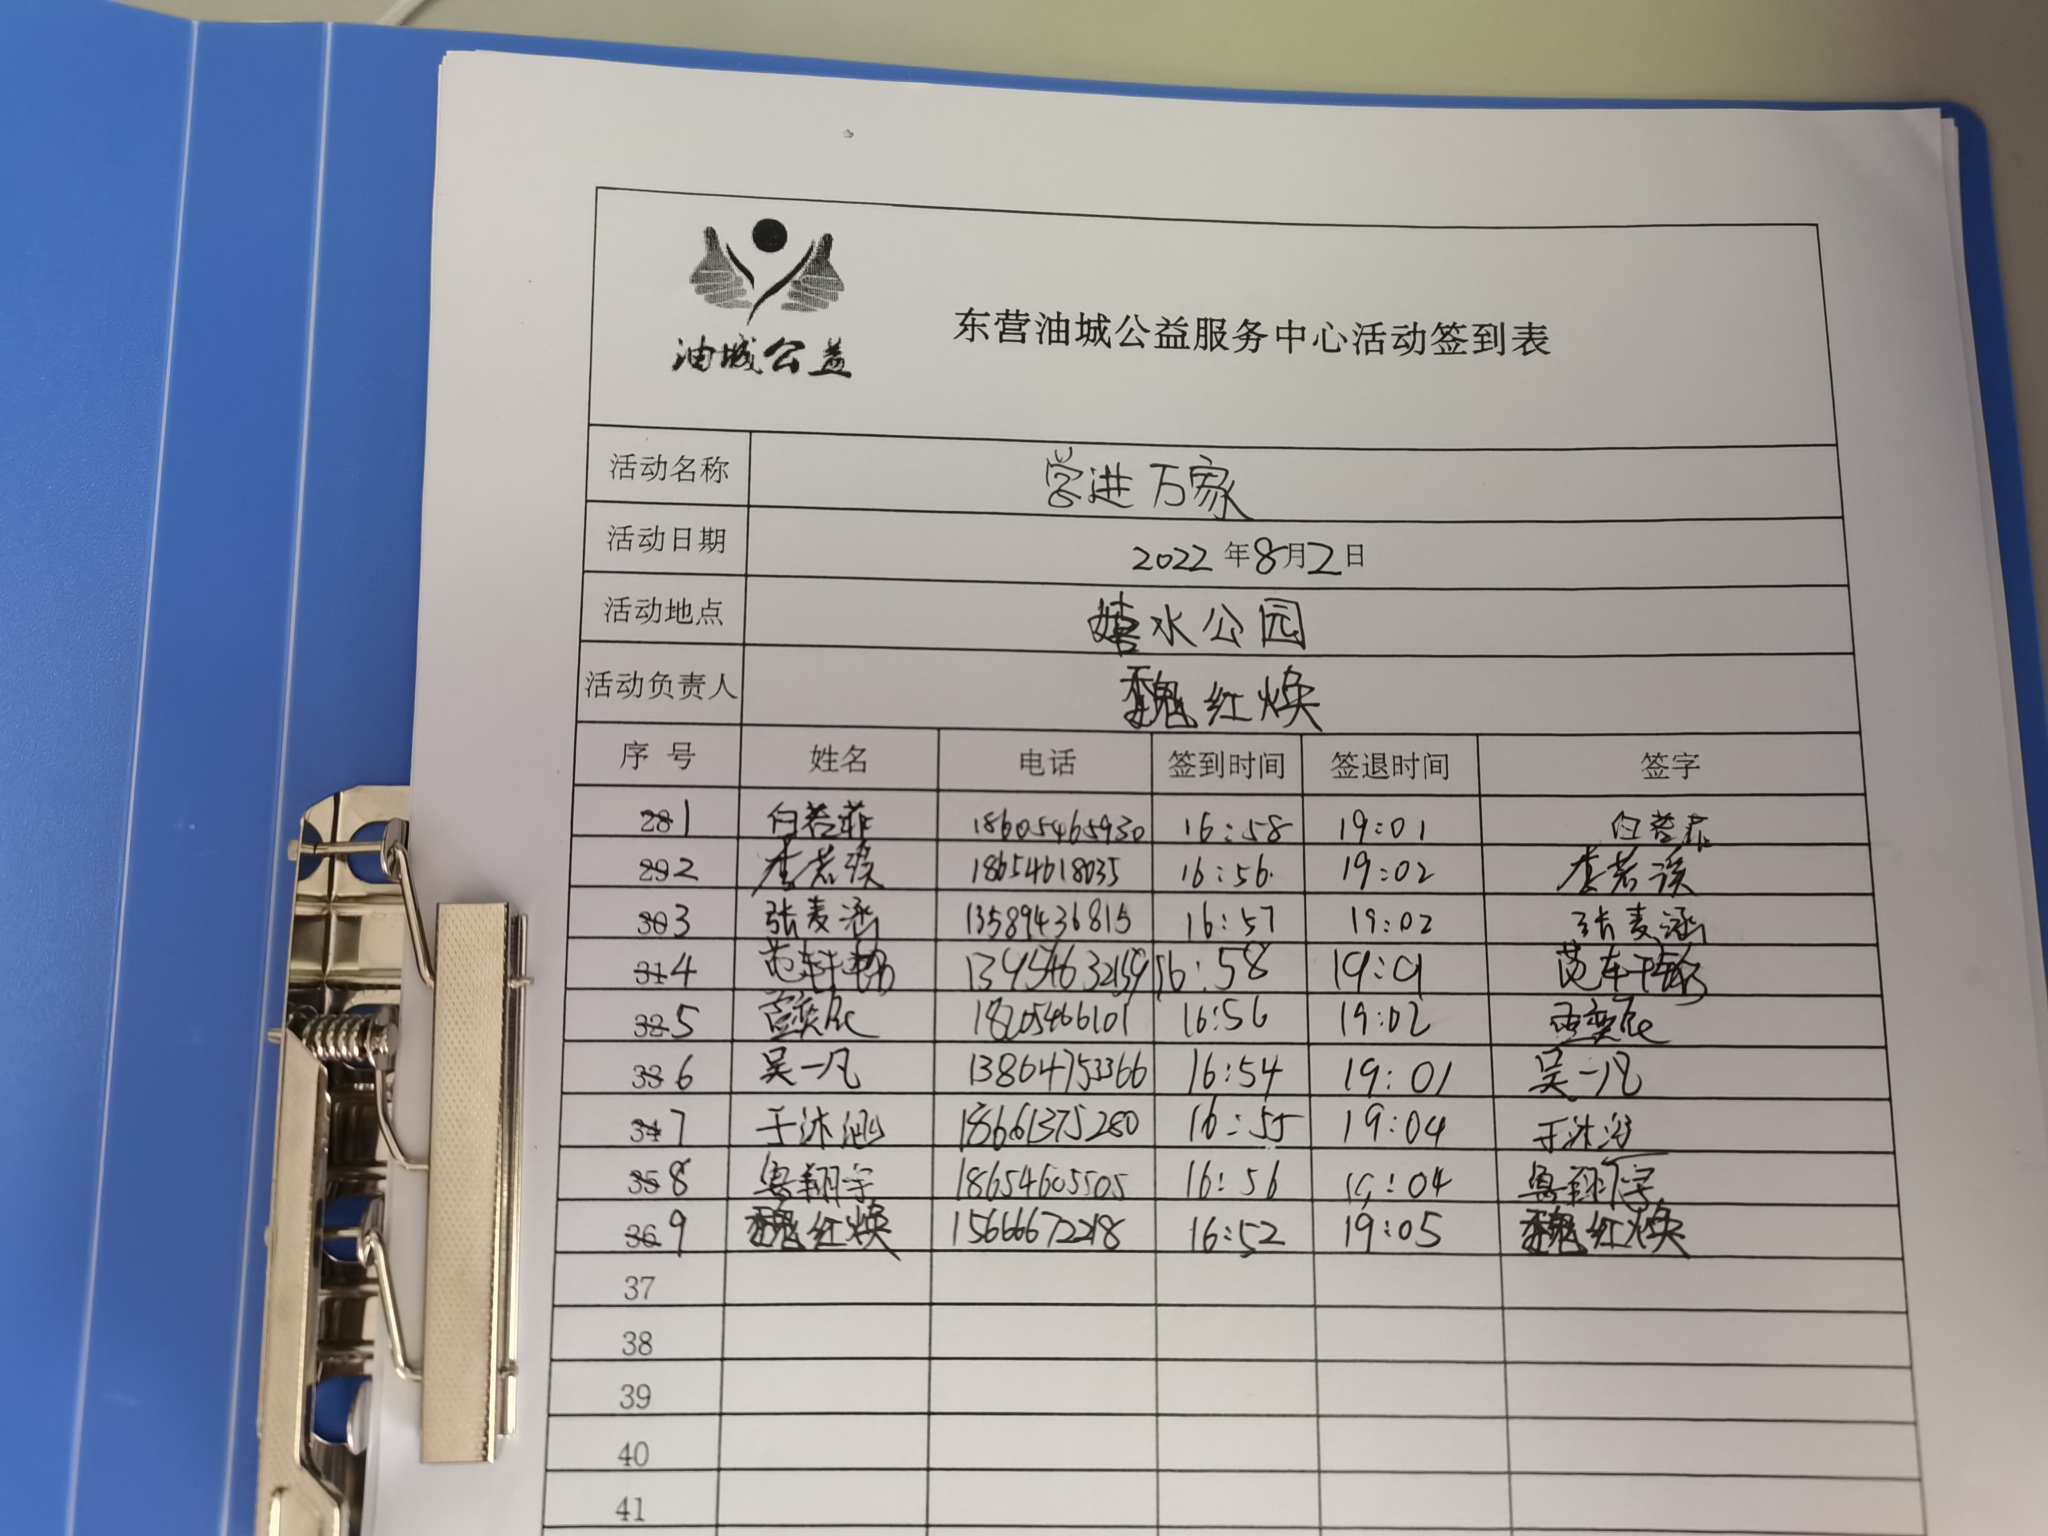 油城公益
东营油城公益服务中心活动签到表
活动名称 营进万家
活动日期 2022年8月2日
活动地点 水公园
活动负责人 魏红焕
序号 姓名 电话 签到时间 签退时间 签字
28 1 白若菲 18605465930 16:58 19:01 白若菲
29 2 李若溪 18654618035 16:56 19:02 李若溪
30 3 张麦涵 13589436815 16:57 19:02 张麦涵
31 4 16:58 19:01
32 5 18205466101 16:56 19:02
33 6 吴一凡 13864753366 16:54 19:01 吴一凡
34 7 于沐涵 18661375280 16:55 19:04 于沐涵
35 8 鲁翔宇 18654605505 16:56 19:04 鲁翔宇
36 9 魏红焕 15666672218 16:52 19:05 魏红焕
37
38
39
40
41